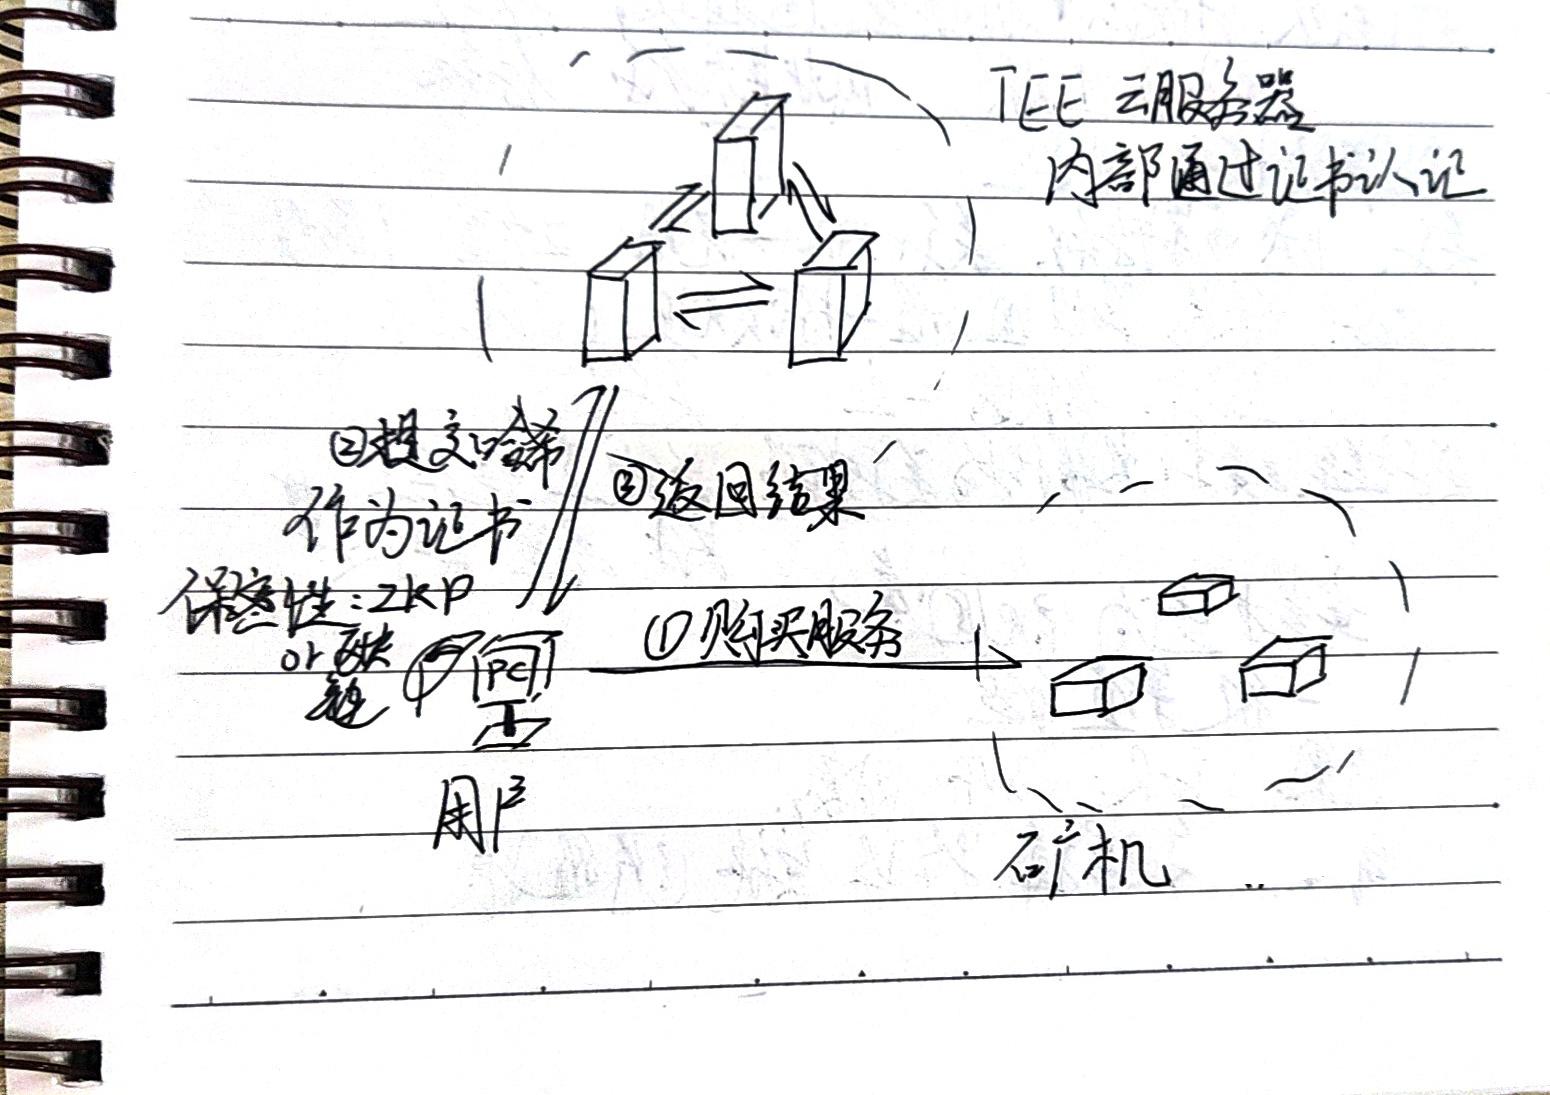 TEE 云服务器
内部通过证书认证
②提交哈希
作为证书
③返回结果
保密性:ZKP
or 联
链
①购买服务
PC
用户
矿机